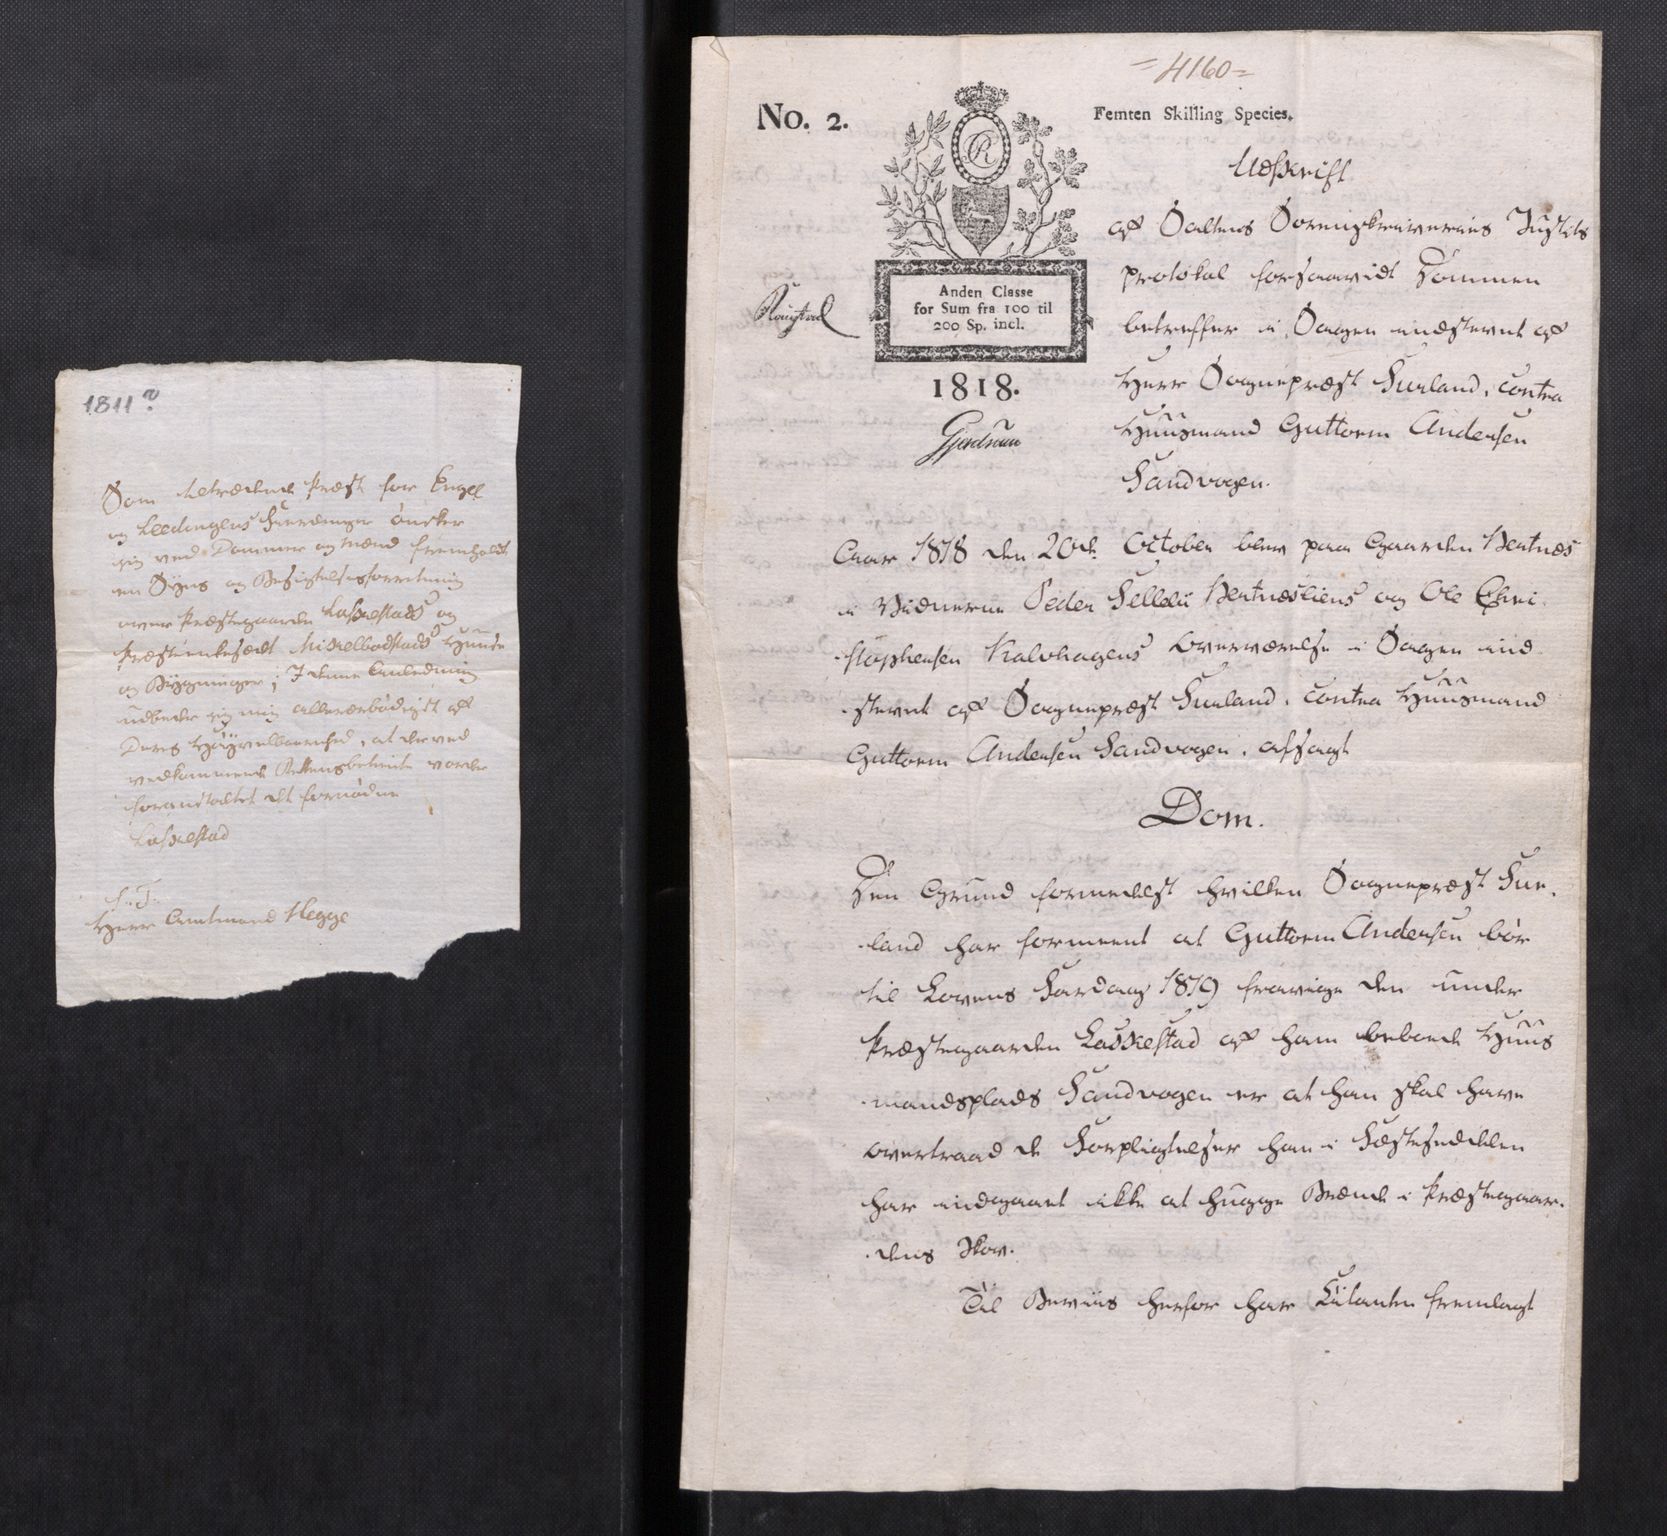 1811?
Som tiltrædende Præst for Engel
og Leedingens Fierdinger ønsker
jeg ved Dommer og Mænd fremholdt
en Syns og Besigtelsesforretning
over Præstegaarden Laskestads og
Præsteenkesædet Mikelbodstads Huuse
og Bygninger; I denne Anledning
udbeder jeg mig allerærbødigst af
Deres Høyvelbaarenhed, at derved
vedkommende Rettensbetiente vorder
foranstaltet det fornødne
Laskestad
S. T.
Herr Amtmand Hegge
=4160=
No. 2.
Femten Skilling Species.
R
Anden Classe
for Sum fra 100 til
200 Sp. incl.
1818.
Udskrift
af Saltens Sorenskriveries Justits
protokol forsaavidt Dommen
betreffer i Sagen indstevnt af
Herr Sognepræst Surland, contra
Huusmand Guttorm Andersen
Sandvogen.
Aar 1818 den 20de October blev paa Gaarden Hertnæs
i Vidnerne Peder Hertnæsliens og Ole Chri-
-stophersen Kalvhagens Overværelse i Sagen ind-
-stevnt af Sognepræst Surland, contra Huusmand
Guttorm Andersen Sandvogen, afsagt
Dom.
Den Grund formedelst hvilken Sognepræst Sur-
-land har formeent at Guttorm Andersen bør
til Lovens Fardag 1819 fravige den under
Præstegaarden Laskestad af ham beboede Huus
-mandsplads Sandvogen er at han skal have
overtraad de Forpligtelser han i Fæstesedelen
har indgaaet ikke at hugge Brænde i Præstegaar-
-dens Skov.
Til Beviis herfor har Citanten fremlagt